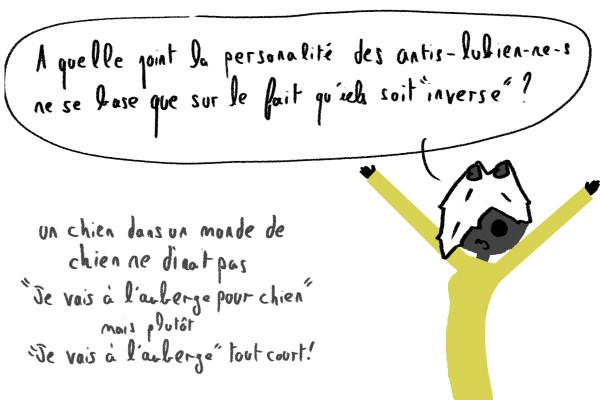 A quelle point la personalité des antis-lubien-ne-s
ne se base que sur le fait qu'iels soit "inverse" ?
un chien dans un monde de
chien ne dirait pas
"Je vais à l'auberge pour chien"
mais plutôt
"Je vais à l'auberge" tout court!